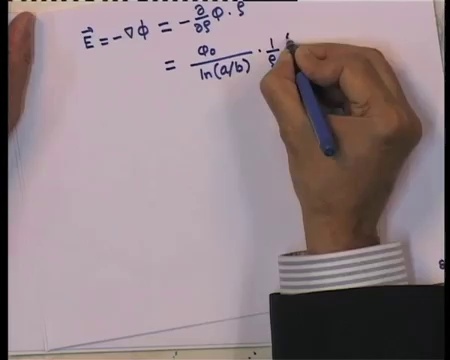 E⃗ = -∇Φ = - ∂/∂ρ Φ · ρ
= Φ₀/ln(a/b) · 1/ρ